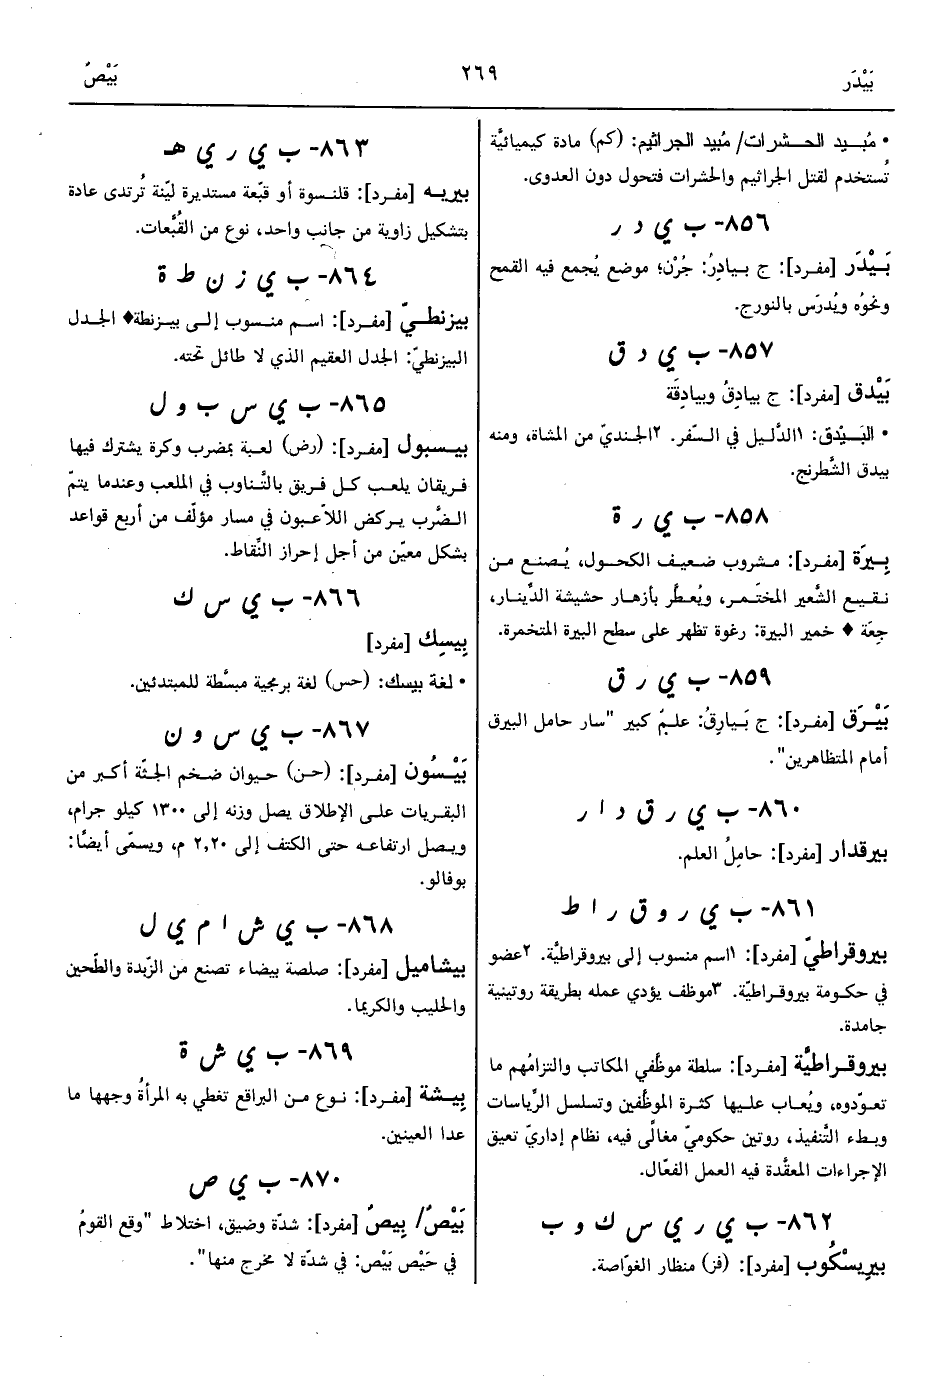 بَيْدَر
٢٦٩
بَيْصٌ
• مُبيد الحشرات/ مُبيد الجراثيم: (كم) مادة كيميائيَّة
تُستخدم لقتل الجراثيم والحشرات فتحول دون العدوى.
٨٥٦- ب ي د ر
بَيْدَر [مفرد]: ج بيادِرُ: جُرْن؛ موضع يُجمع فيه القمح
ونحوُه ويُدرَس بالنورج.
٨٥٧- ب ي د ق
بَيْدق [مفرد]: ج بيادِقُ وبيادِقَة
• البَيْدق: ١الدَّليل في السَّفر. ٢الجنديّ من المشاة، ومنه
بيدق الشَّطرنج.
٨٥٨- ب ي ر ة
بِيرَة [مفرد]: مشروب ضعيف الكحول، يُصنع من
نقيع الشَّعير المختَمر، ويُعطَّر بأزهار حشيشة الدِّينار،
جِعَة ♦ خمير البيرة: رغوة تظهر على سطح البيرة المتخمرة.
٨٥٩- ب ي ر ق
بَيْرَق [مفرد]: ج بَيارِقُ: علمٌ كبير "سار حامل البيرق
أمام المتظاهرين".
٨٦٠- ب ي ر ق د ا ر
بيرقدار [مفرد]: حامِلُ العلم.
٨٦١- ب ي ر و ق ر ا ط
بيروقراطيّ [مفرد]: ١اسم منسوب إلى بيروقراطيَّة. ٢عضو
في حكومة بيروقراطيّة. ٣موظف يؤدي عمله بطريقة روتينية
جامدة.
بيروقراطيَّة [مفرد]: سلطة موظَّفي المكاتب والتزامُهم ما
تعوّدوه، ويُعاب عليها كثرة الموظَّفين وتسلسل الرِّياسات
وبطء التَّنفيذ، روتين حكوميّ مغالًى فيه، نظام إداريّ تعيق
الإجراءات المعقَّدة فيه العمل الفعّال.
٨٦٢- ب ي ر ي س ك و ب
بيريسْكُوب [مفرد]: (فز) منظار الغوّاصة.
٨٦٣- ب ي ر ي هـ
بيريه [مفرد]: قلنسوة أو قبّعة مستديرة ليّنة تُرتدى عادة
بتشكيل زاوية من جانب واحد، نوع من القُبَّعات.
٨٦٤- ب ي ز ن ط ة
بيزنطيّ [مفرد]: اسم منسوب إلى بيزنطة♦ الجدل
البيزنطيّ: الجدل العقيم الذي لا طائل تحته.
٨٦٥- ب ي س ب و ل
بيسبول [مفرد]: (رض) لعبة بمضرب وكرة يشترك فيها
فريقان يلعب كل فريق بالتَّناوب في الملعب وعندما يتمّ
الضَّرب يركض اللاّعبون في مسار مؤلّف من أربع قواعد
بشكل معيّن من أجل إحراز النِّقاط.
٨٦٦- ب ي س ك
بِيسِك [مفرد]
• لغة بيسك: (حس) لغة برمجية مبسَّطة للمبتدئين.
٨٦٧- ب ي س و ن
بَيْسُون [مفرد]: (حن) حيوان ضخم الجثّة أكبر من
البقريات على الإطلاق يصل وزنه إلى ١٣٠٠ كيلو جرام،
ويصل ارتفاعه حتى الكتف إلى ٢,٢٠ م، ويسمّى أيضًا:
بوفالو.
٨٦٨- ب ي ش ا م ي ل
بيشاميل [مفرد]: صلصة بيضاء تصنع من الزّبدة والطَّحين
والحليب والكريما.
٨٦٩- ب ي ش ة
بِيشة [مفرد]: نوع من البراقع تغطي به المرأةُ وجهها ما
عدا العينين.
٨٧٠- ب ي ص
بَيْصٌ/ بِيصٌ [مفرد]: شدّة وضيق، اختلاط "وقع القومُ
في حَيْص بَيْص: في شدّة لا مخرج منها".